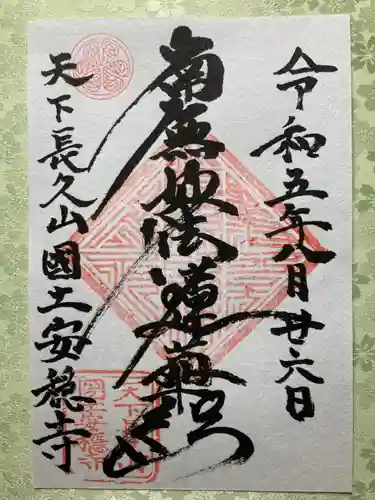 令和五年八月廿六日
南無妙法蓮華経
天下長久山國土安穏寺